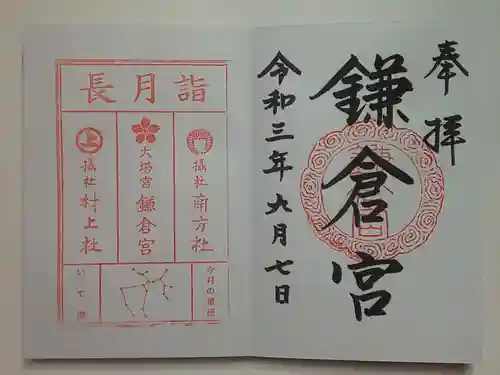 奉拝
鎌倉宮
令和三年九月七日
長月詣
摂社 南方社
大塔宮 鎌倉宮
上
摂社 村上社
今月の星座
いて座